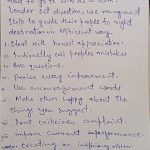 need to go to words to a win.
Leader set direction. Use management
skills to guide their people to right
destination in efficient way.
i. Start with honest appreciation.
ii. Indirectly call peoples mistakes
iii. Ask questions.
iv. Praise every improvement.
v. Use encouragement words
vi. Make them happy about the
things you suggest.
Dont criticise, complaint.
improve current experformance.
Creating an inspiring vision